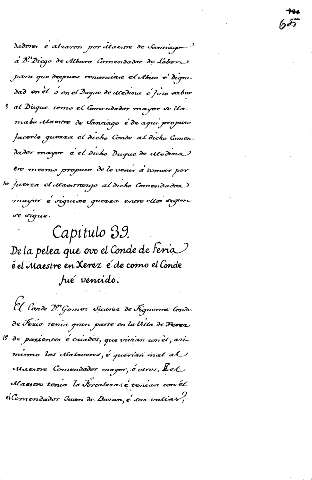 685
dadores é alzaron por Maestre de Santiago
á Dn. Diego de Albura Comendador de Lobon
para que despues renunciase el Abito é digni-
dad en él ó en el Duque de Medina é fizo saber
5 al Duque como el Comendador mayor se lla-
maba Maestre de Santiago é de aqui propuso
facerle guerra el dicho Conde al dicho Comen-
dador mayor é el dicho Duque de Medina
eso mesmo propuso de lo venir á tomar por
10 fuerza el Maestrazgo al dicho Comendador
mayor é siguiose guerra entre ellos segun
se sigue.
Capitulo 39.
De la pelea que ovo el Conde de Feria
é el Maestre en Xerez é de como el Conde
fué vencido.
El Conde Dn. Gomez Suarez de Figueroa Conde
de Feria tenia gran parte en la Villa de Xerez
15 de parientes é criados, que vivian con él, asi-
mismo los querian mal al
Maestre Comendador mayor, é otros, É el
Maestre tenia la Fortaleza é tenian con él
el Comendador Juan de é sus valias?